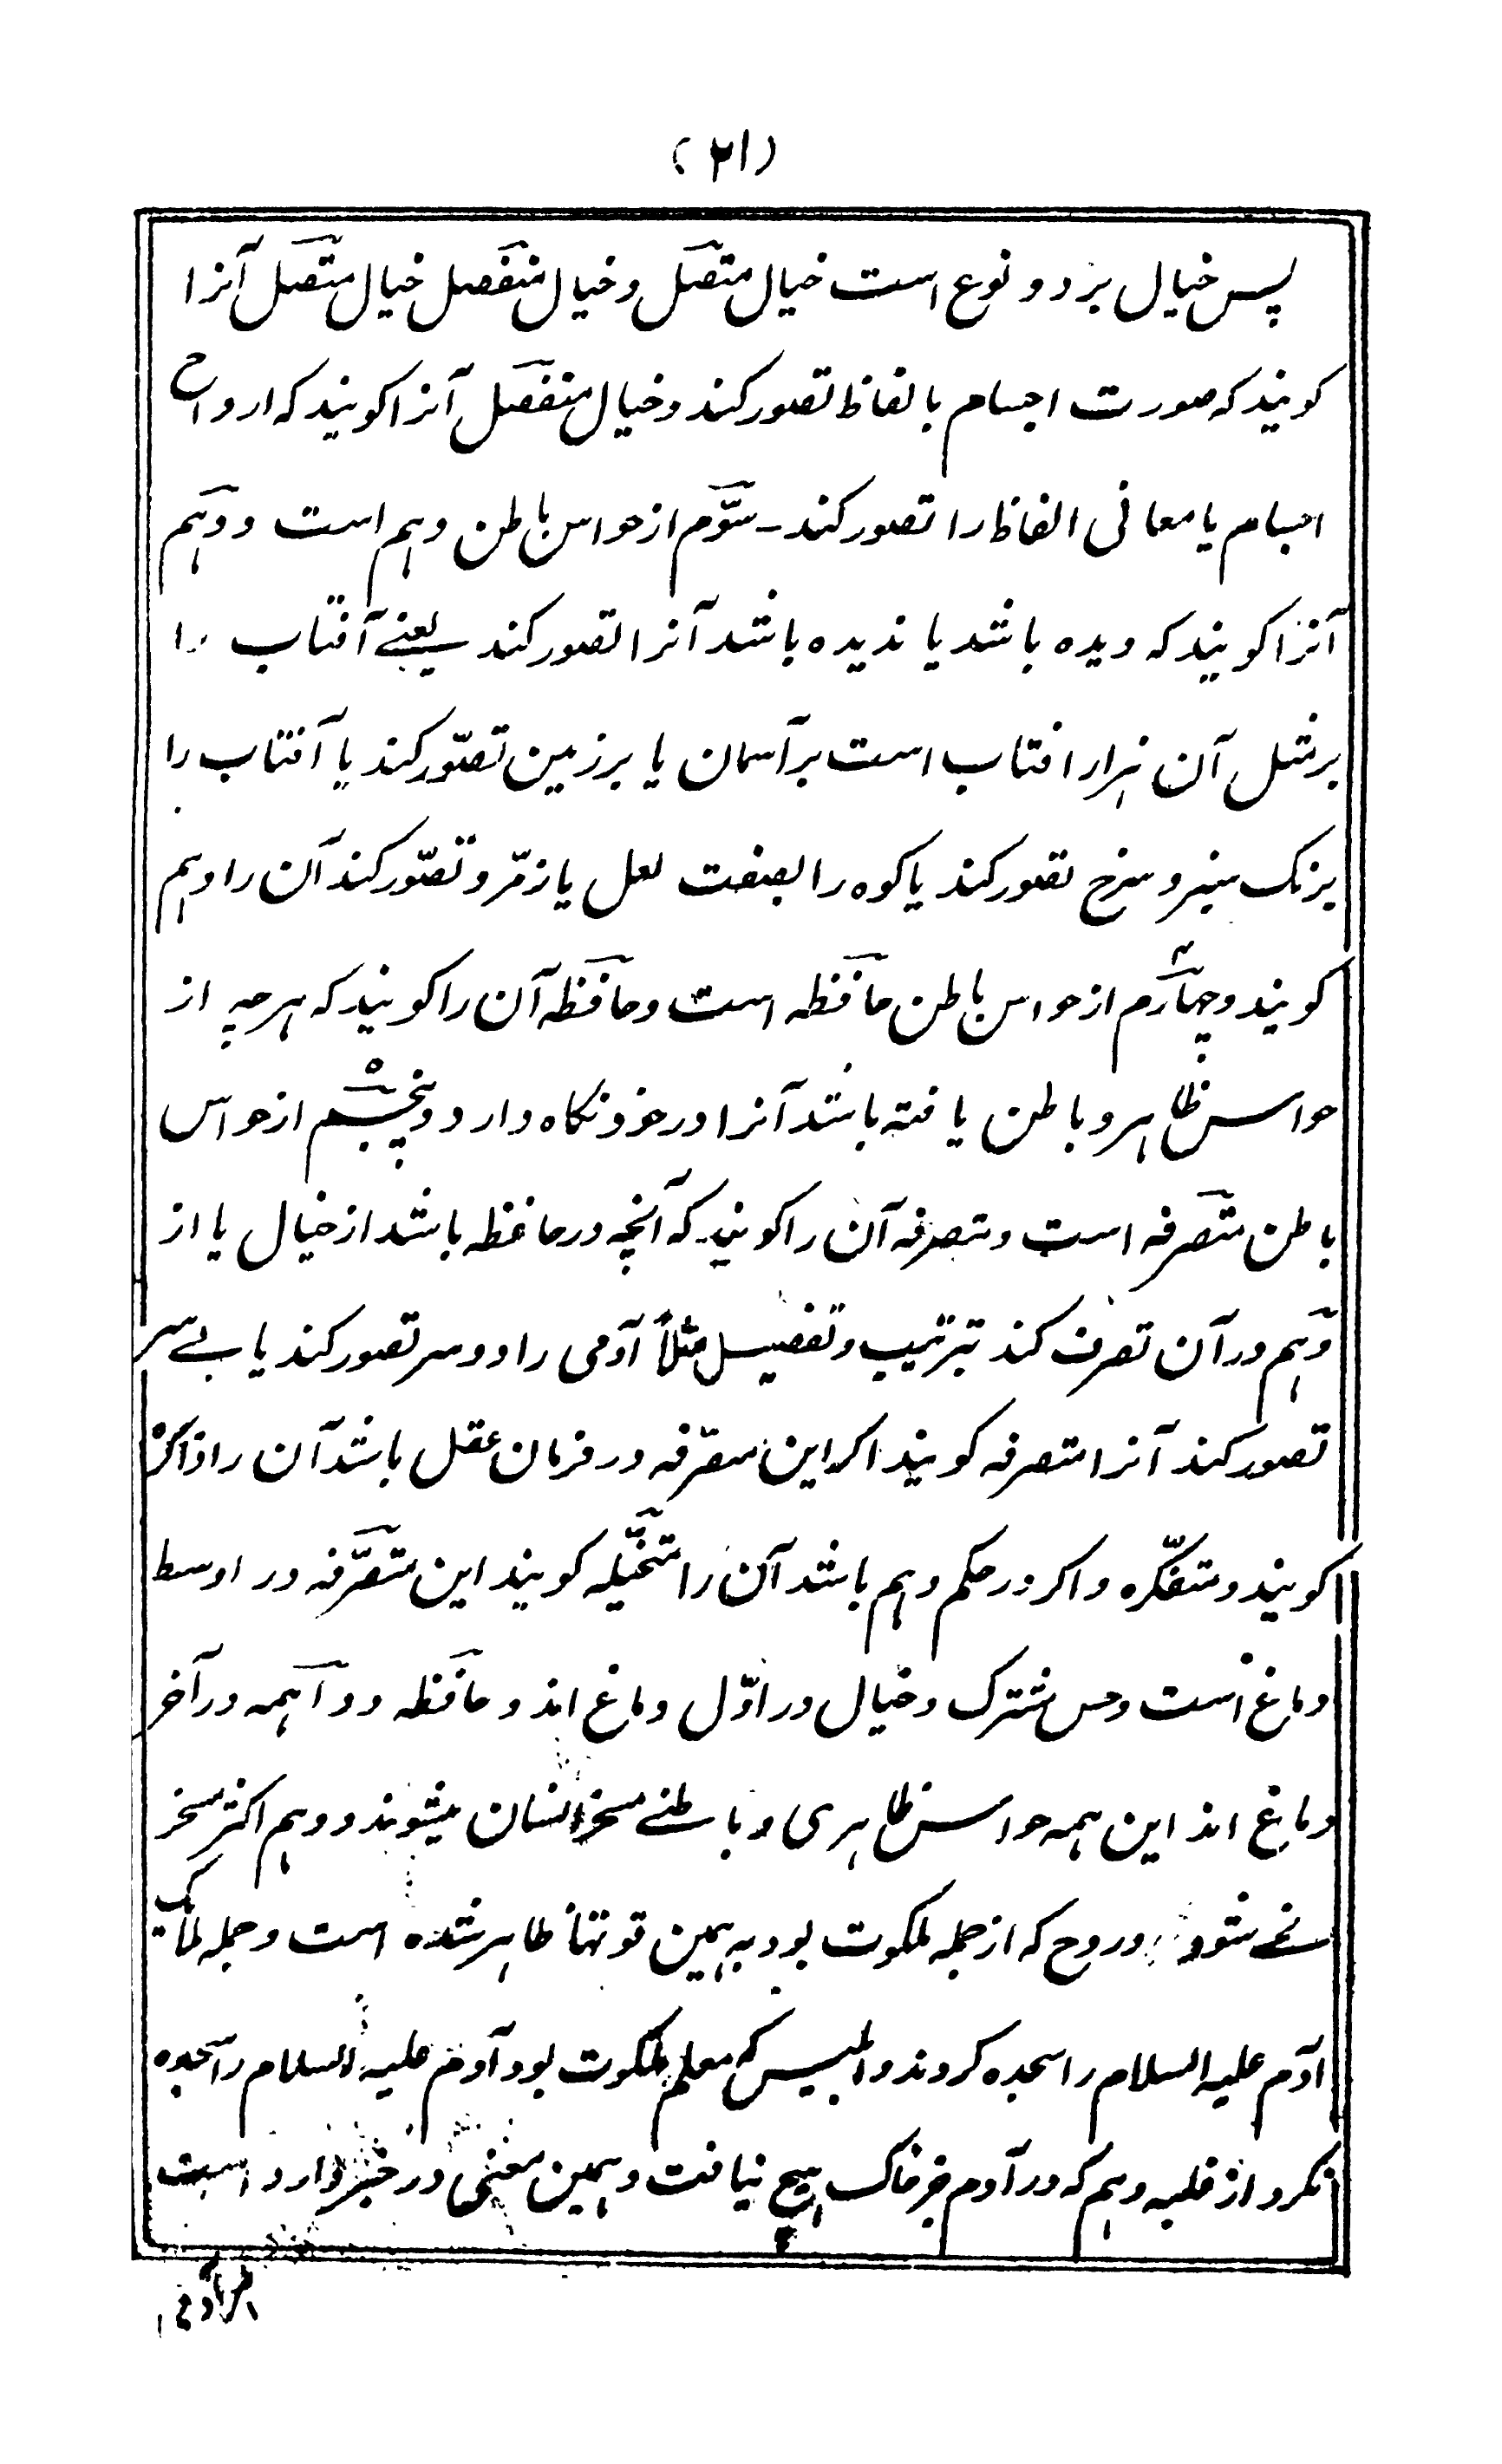 (۲۱)
پس خیال بر دو نوع است خیال متصل و خیال منفصل خیال متصل آنرا
کویند که صورت اجسام با لفاظ تصور کند و خیال منفصل آنرا کویند که ارواح
اجسام یا معانی الفاظ را تصور کند - سوّم از حواس باطن وہم است و وہم
آنرا کویند که دیده باشد یا ندیده باشد آنرا تصور کند یعنے آفتاب را
بر مثل آن ہزار افتاب است بر آسمان یا بر زمین تصوّر کند یا آفتاب را
برنک سبز و سرخ تصور کند یا کوه را بصفت لعل یا زمرّد تصوّر کند آن را وہم
کویند و چہارم از حواس باطن حافظه است و حافظه آن را کویند که ہرچه از
حواس ظاہر و باطن یافته باشد آنرا در خود نکاه دارد و پنجم از حواس
باطن متصرفه است و متصرفه آن را کویند که آنچه در حافظه باشد از خیال یا از
وہم در آن تصرف کند بترتیب و تفصیل مثلاً آدمی را دو سر تصور کند یا بے سر
تصور کند آنرا متصرفه کویند اکر این متصرّفه در فرمان عقل باشد آن را ذاکره
کویند و متفکّره و اکر در حکم وہم باشد آن را متخیّله کویند این متصرّفه در اوسط
دماغ است و حس مشترک و خیال در اوّل دماغ اند و حافظه و واہمه در آخر
دماغ اند این ہمه حواس ظاہری و باطنے مسخر انسان میشوند و وہم اکثر مسخر
نمے شود و روح که از جمله ملکوت بود به ہمین قوتها ظاہر شده است و جمله ملائک
آدم علیه السلام را سجده کردند و ابلیس که معلم ملکوت بود آدم علیه السلام را سجده
نکرد از غلبه وہم که در آدم جز خاک ہیچ نیافت و ہمین معنی در خبر وارد است